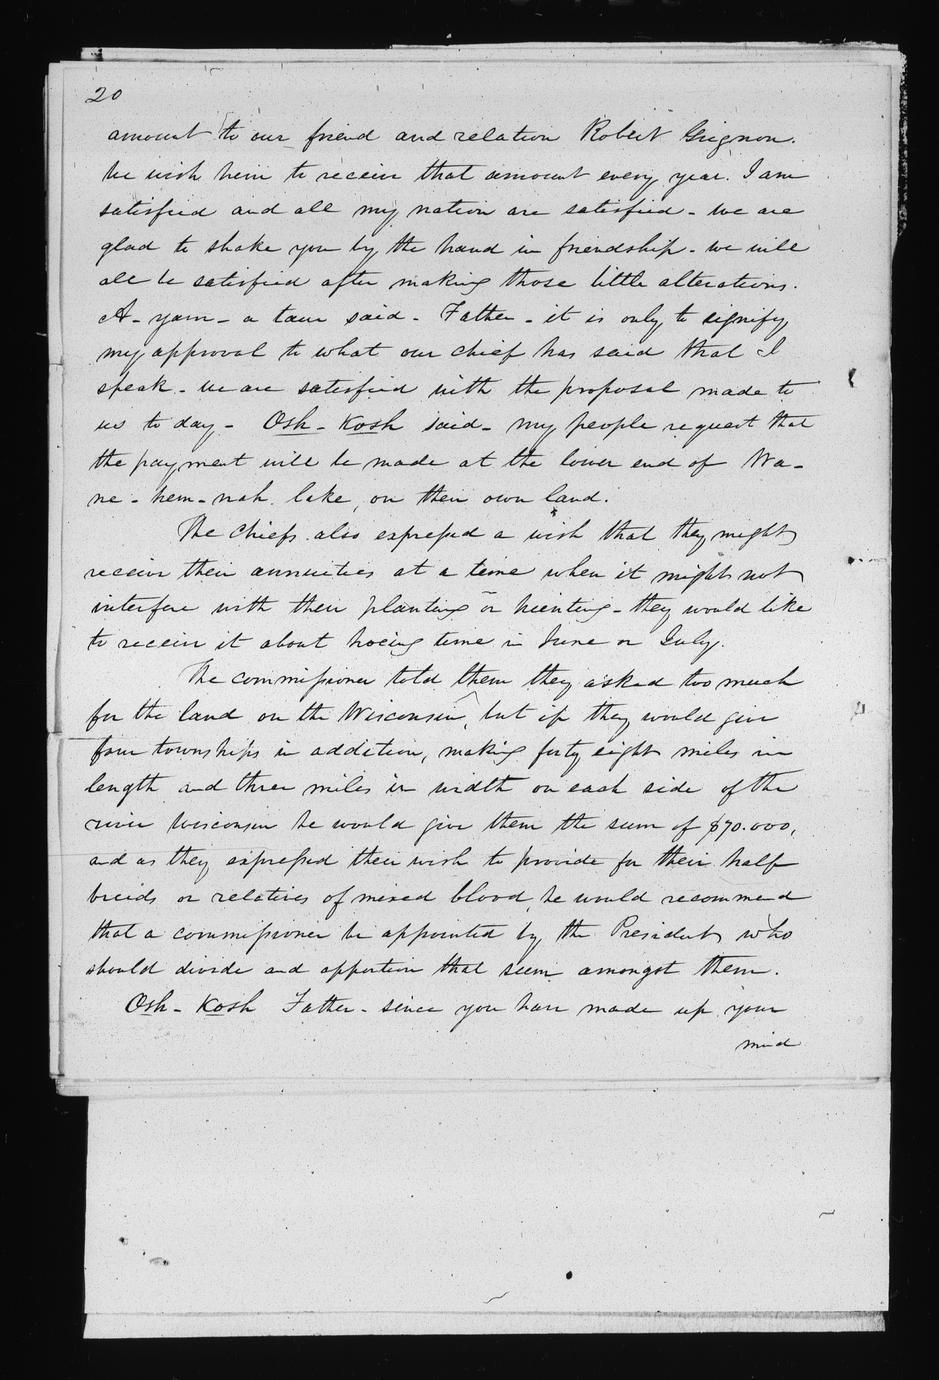 20
amount to our friend and relation Robert Grignon.
We wish him to receive that amount every year. I am
satisfied and all my nation are satisfied - we are
glad to shake you by the hand in friendship - we will
all be satisfied after making those little alterations.
A - yam - a taw said - Father - it is only to signify
my approval to what our chief has said that I
speak - we are satisfied with the proposal made to
us to day - Osh - Kosh said - my people request that
the payment will be made at the lower end of Wa -
ne - hem - nah lake, on their own land.
The chiefs also expressed a wish that they might
receive their annuities at a time when it might not
interfere with their planting or hunting - they would like
to receive it about hoeing time in June or July.
The commissioner told them they asked too much
for the land on the Wisconsin, but if they would give
four townships in addition, making forty eight miles in
length and three miles in width on each side of the
river Wisconsin he would give them the sum of $70.000,
and as they expressed their wish to provide for their half
breeds or relatives of mixed blood, he would recommend
that a commissioner be appointed by the President who
should divide and apportion that sum amongst them.
Osh - Kosh Father - since you have made up your
mind